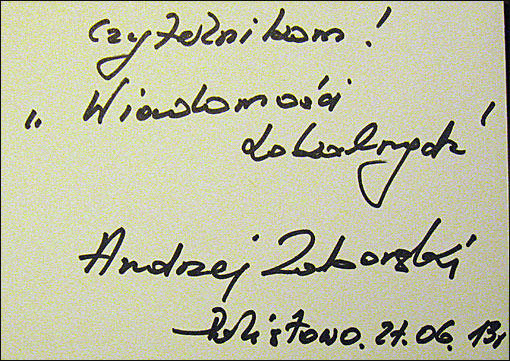 Czytelnikom!
„ Wiadomości
Lokalnych"
Andrzej Zaborski
21.06.13r